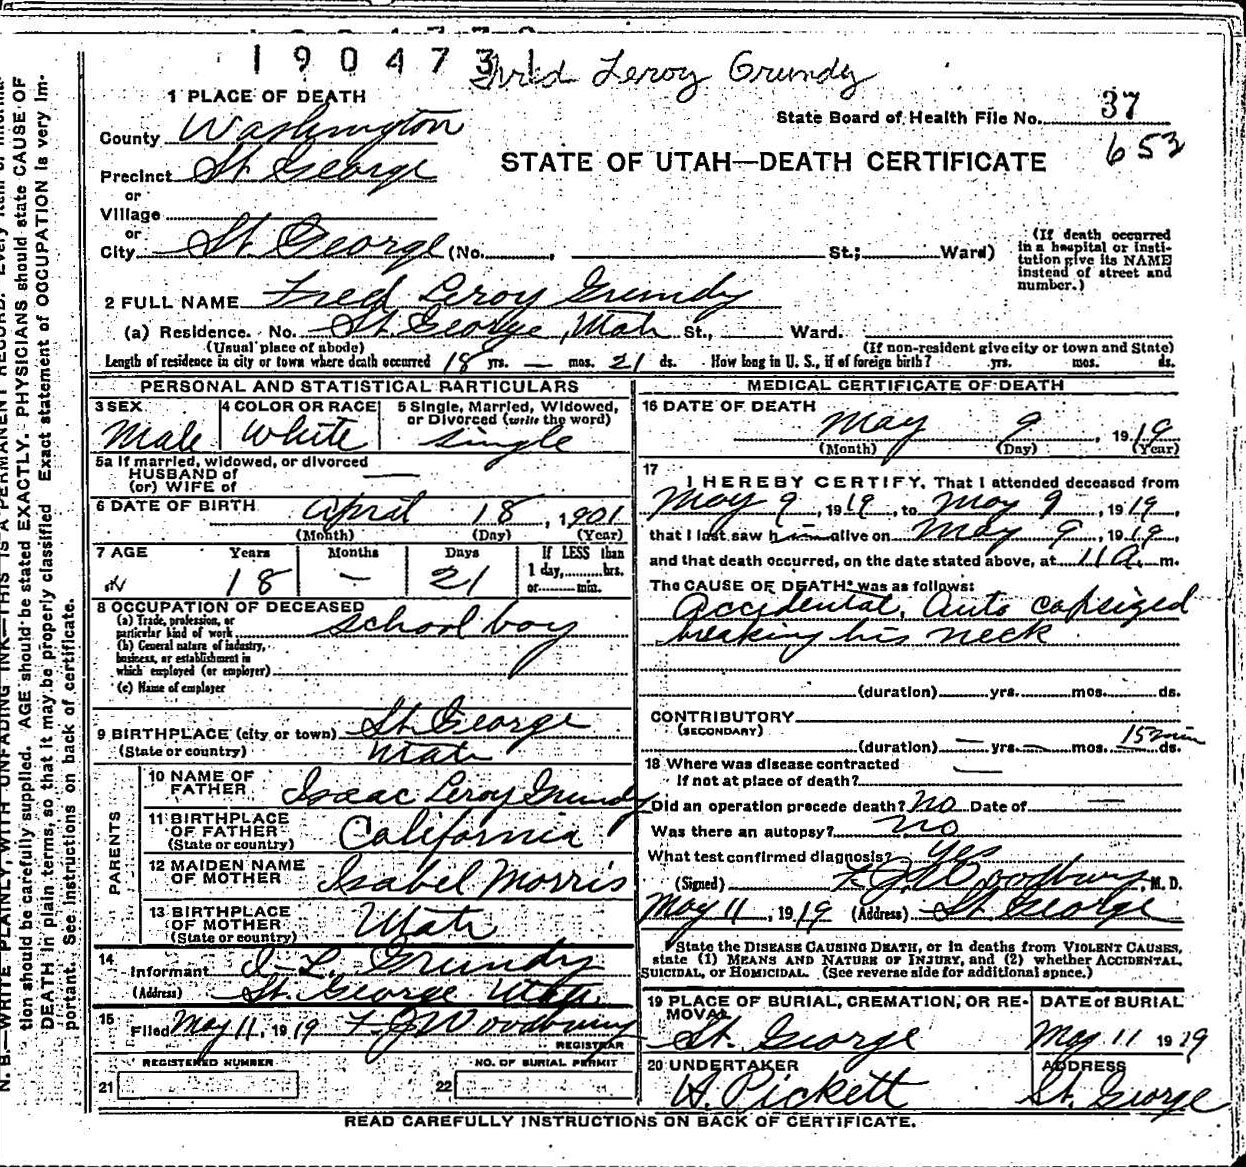 190473
Fred Leroy Grundy
1 PLACE OF DEATH
State Board of Health File No. 37
653
County Washington
STATE OF UTAH—DEATH CERTIFICATE
Precinct St. George
or
Village
or
City St. George (No. , St.; Ward)
(If death occurred
in a hospital or insti-
tution give its NAME
instead of street and
number.)
2 FULL NAME Fred Leroy Grundy
(a) Residence. No. St. George, Utah St., Ward.
(Usual place of abode) (If non-resident give city or town and State)
Length of residence in city or town where death occurred 18 yrs. — mos. 21 ds. How long in U. S., if of foreign birth? yrs. mos. ds.
PERSONAL AND STATISTICAL PARTICULARS
3 SEX
Male
4 COLOR OR RACE
White
5 Single, Married, Widowed,
or Divorced (write the word)
Single
5a If married, widowed, or divorced
HUSBAND of
(or) WIFE of —
6 DATE OF BIRTH April 18, 1901
(Month) (Day) (Year)
7 AGE Years Months Days If LESS than
18 — 21 1 day, hrs.
or min.
8 OCCUPATION OF DECEASED
(a) Trade, profession, or
particular kind of work school boy
(b) General nature of industry,
business, or establishment in
which employed (or employer)
(c) Name of employer
9 BIRTHPLACE (city or town) St. George
(State or country) Utah
PARENTS
10 NAME OF
FATHER Isaac Leroy Grundy
11 BIRTHPLACE
OF FATHER California
(State or country)
12 MAIDEN NAME
OF MOTHER Isabel Morris
13 BIRTHPLACE
OF MOTHER Utah
(State or country)
14
Informant I. L. Grundy
(Address) St. George Utah
15
Filed May 11, 1919 F J Woodbury
REGISTRAR
REGISTERED NUMBER NO. OF BURIAL PERMIT
21 22
MEDICAL CERTIFICATE OF DEATH
16 DATE OF DEATH
May 9, 1919
(Month) (Day) (Year)
17
I HEREBY CERTIFY, That I attended deceased from
May 9, 1919, to May 9, 1919,
that I last saw him alive on May 9, 1919,
and that death occurred, on the date stated above, at 11 a. m.
The CAUSE OF DEATH* was as follows:
Accidental. Auto capsized
breaking his neck
(duration) yrs. mos. ds.
CONTRIBUTORY
(SECONDARY)
15 min
(duration) — yrs. — mos. — ds.
18 Where was disease contracted
if not at place of death? —
Did an operation precede death? No Date of —
Was there an autopsy? No
What test confirmed diagnosis? Yes
(Signed) F J Woodbury, M. D.
May 11, 1919 (Address) St. George
*State the DISEASE CAUSING DEATH, or in deaths from VIOLENT CAUSES,
state (1) MEANS AND NATURE OF INJURY, and (2) whether ACCIDENTAL,
SUICIDAL, or HOMICIDAL. (See reverse side for additional space.)
19 PLACE OF BURIAL, CREMATION, OR RE-
MOVAL
St. George
DATE of BURIAL
May 11 1919
20 UNDERTAKER
H. Pickett
ADDRESS
St. George
READ CAREFULLY INSTRUCTIONS ON BACK OF CERTIFICATE.
N. B.—WRITE PLAINLY, WITH UNFADING INK—THIS IS A PERMANENT RECORD. Every item of informa-
tion should be carefully supplied. AGE should be stated EXACTLY. PHYSICIANS should state CAUSE OF
DEATH in plain terms, so that it may be properly classified. Exact statement of OCCUPATION is very im-
portant. See instructions on back of certificate.